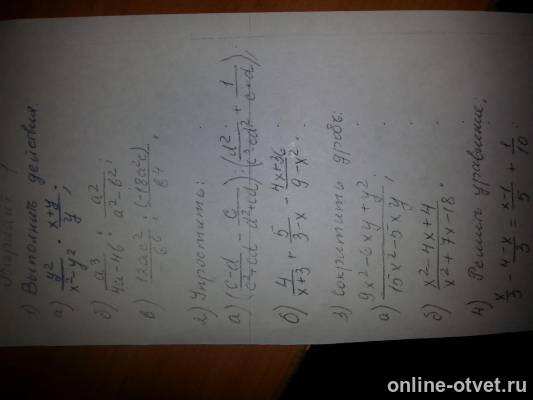 Вариант 1
1) Выполнить действия
а) y²/(x²-y²) · (x+y)/y;
б) a³/(4a-4b) : a²/(a²-b²);
в) 12ac²/ : (-18a²c)
2) Упростить:
а) ((c-d)/(c²+cd) - c/(d²+cd)) : (d²/(c³-cd²) + 1/(c+d));
б) 4/(x+3) + 5/(3-x) - (4x+36)/(9-x²).
3) Сократить дробь:
а) (9x²-6xy+y²)/(15x²-5xy);
б) (x²-4x+4)/(x²+7x-18).
4) Решить уравнение;
x/3 - (4-x)/3 = (x-1)/5 + 1/10
online-otvet.ru